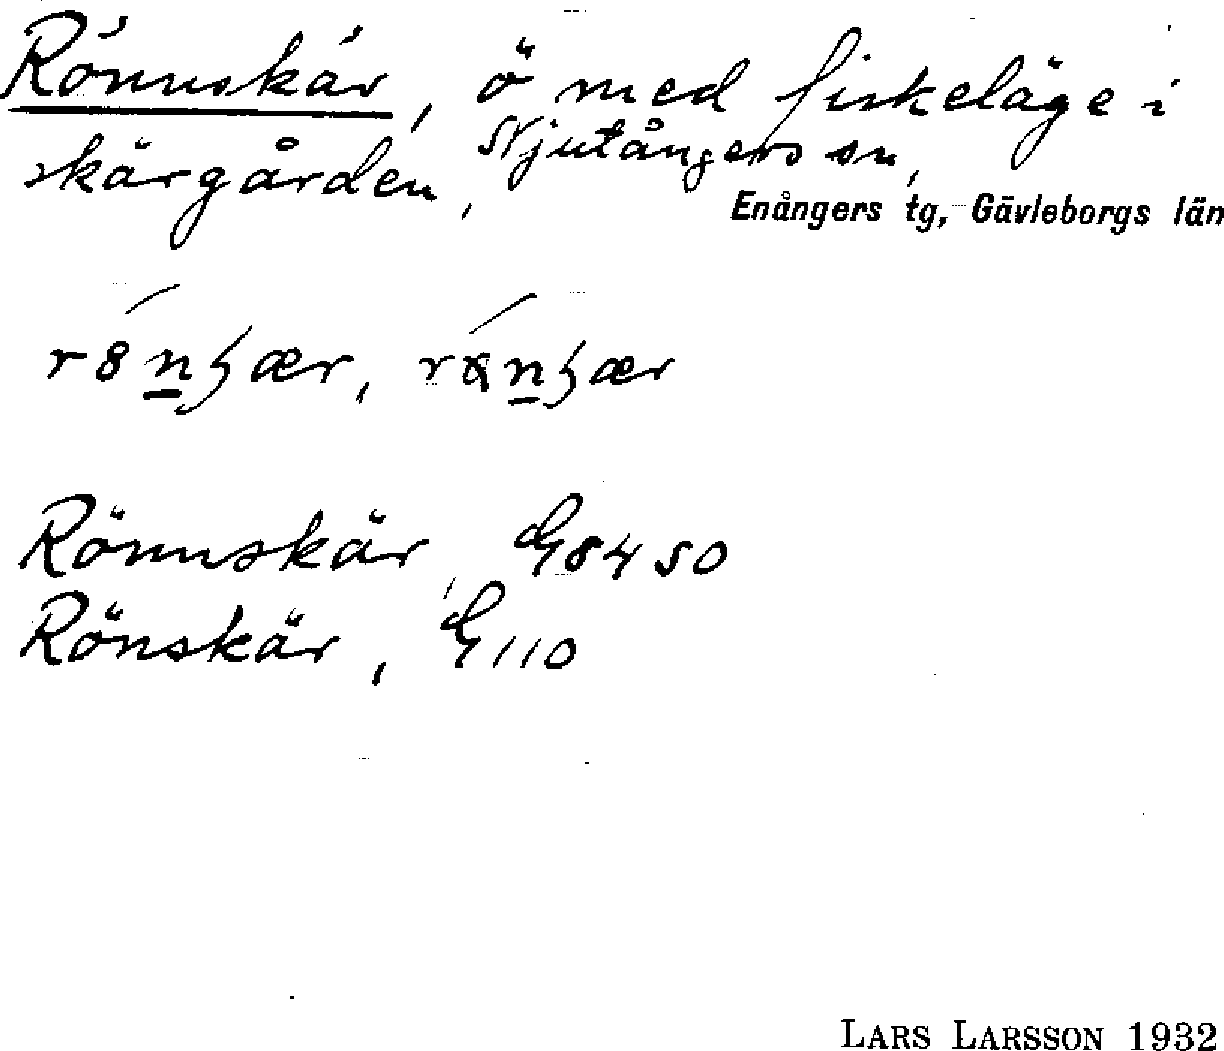 Rönnskär, ö med fiskeläge i
skärgården, Njutångers sn,
Enångers tg, Gävleborgs län
Rönnskär, G 84 SO
Rönskär, G 110
LARS LARSSON 1932